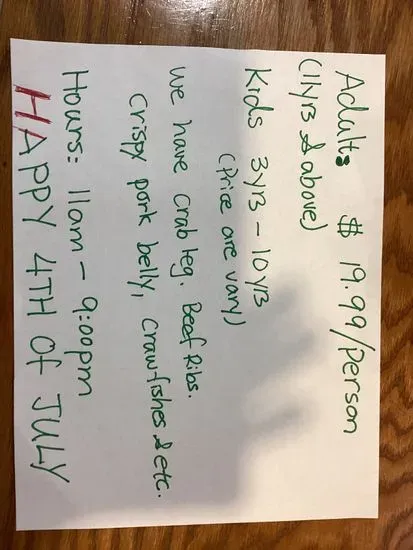 Adult: $ 19.99/person
(11yrs & above)
Kids 3yrs - 10yrs
(Price are vary)
We have crab leg. Beef Ribs.
Crispy pork belly, Crawfishes & etc.
Hours: 11am - 9:00pm
HAPPY 4TH OF JULY